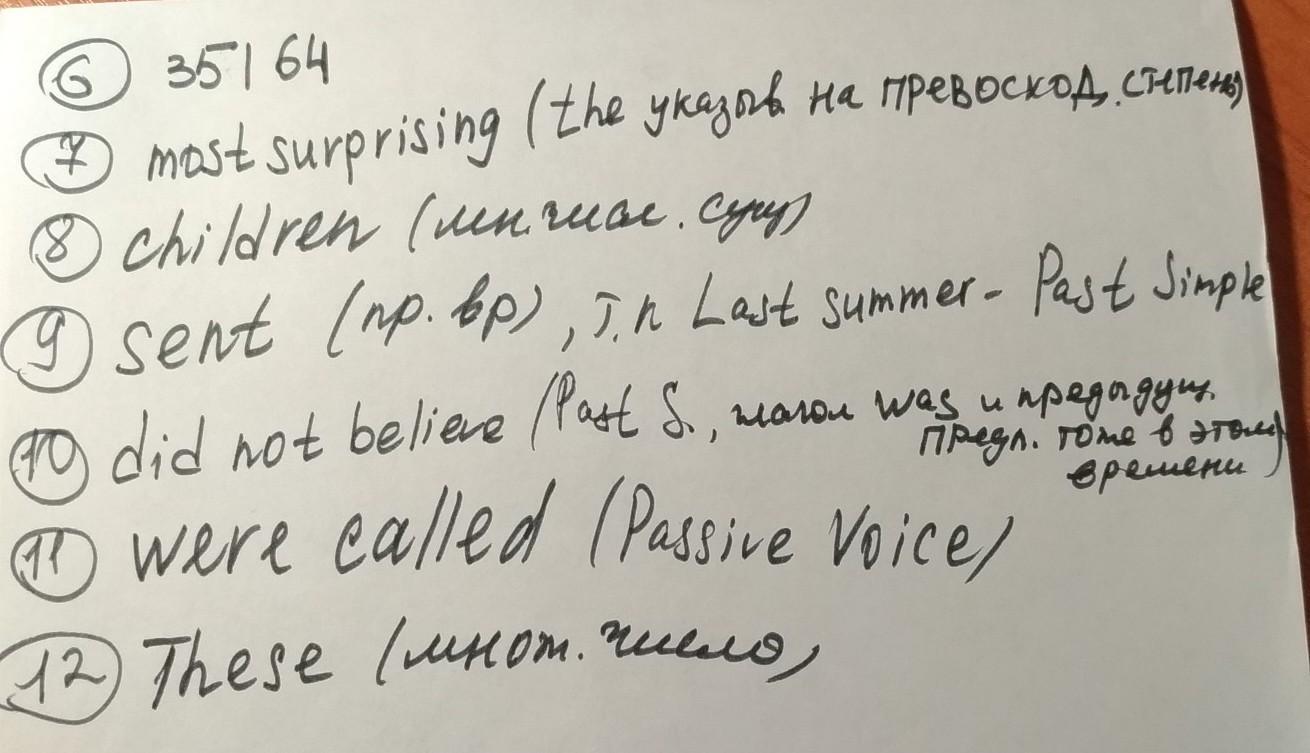 6 35164
7 most surprising (the указыв. на превосход. степень)
8 children (мн. числ. сущ)
9 sent (пр. вр), т.п Last summer - Past Simple
10 did not believe (Past S., глагол was и предыдущ.
предл. тоже в этом
времени)
11 were called (Passive Voice)
12 These (множ. число)